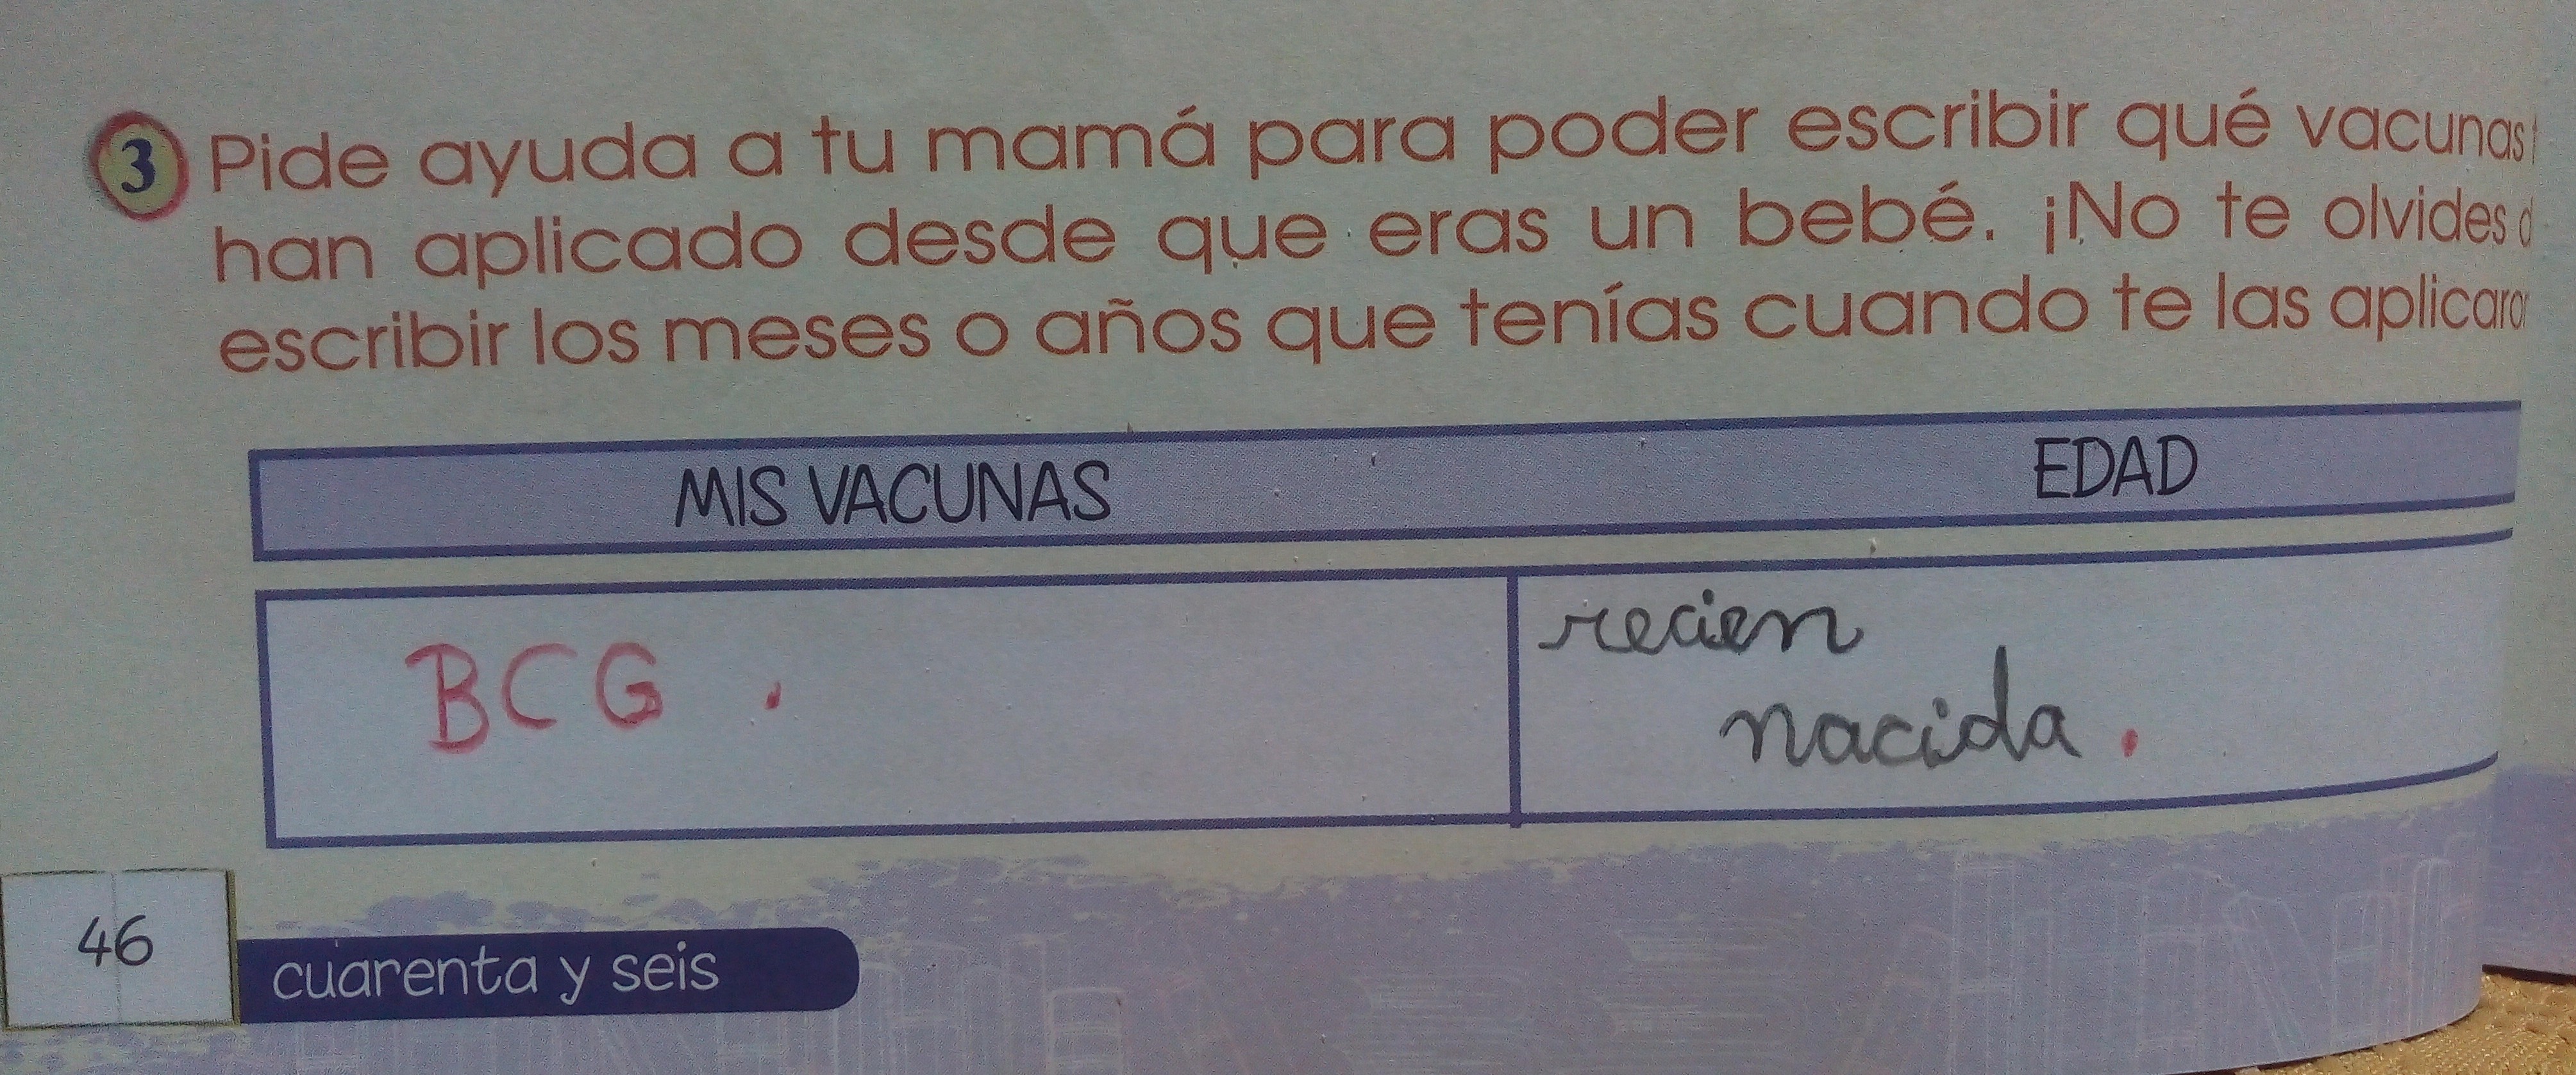 3 Pide ayuda a tu mamá para poder escribir qué vacunas
han aplicado desde que eras un bebé. ¡No te olvides
escribir los meses o años que tenías cuando te las aplicaro
MIS VACUNAS EDAD
BCG . recien
nacida .
46 cuarenta y seis